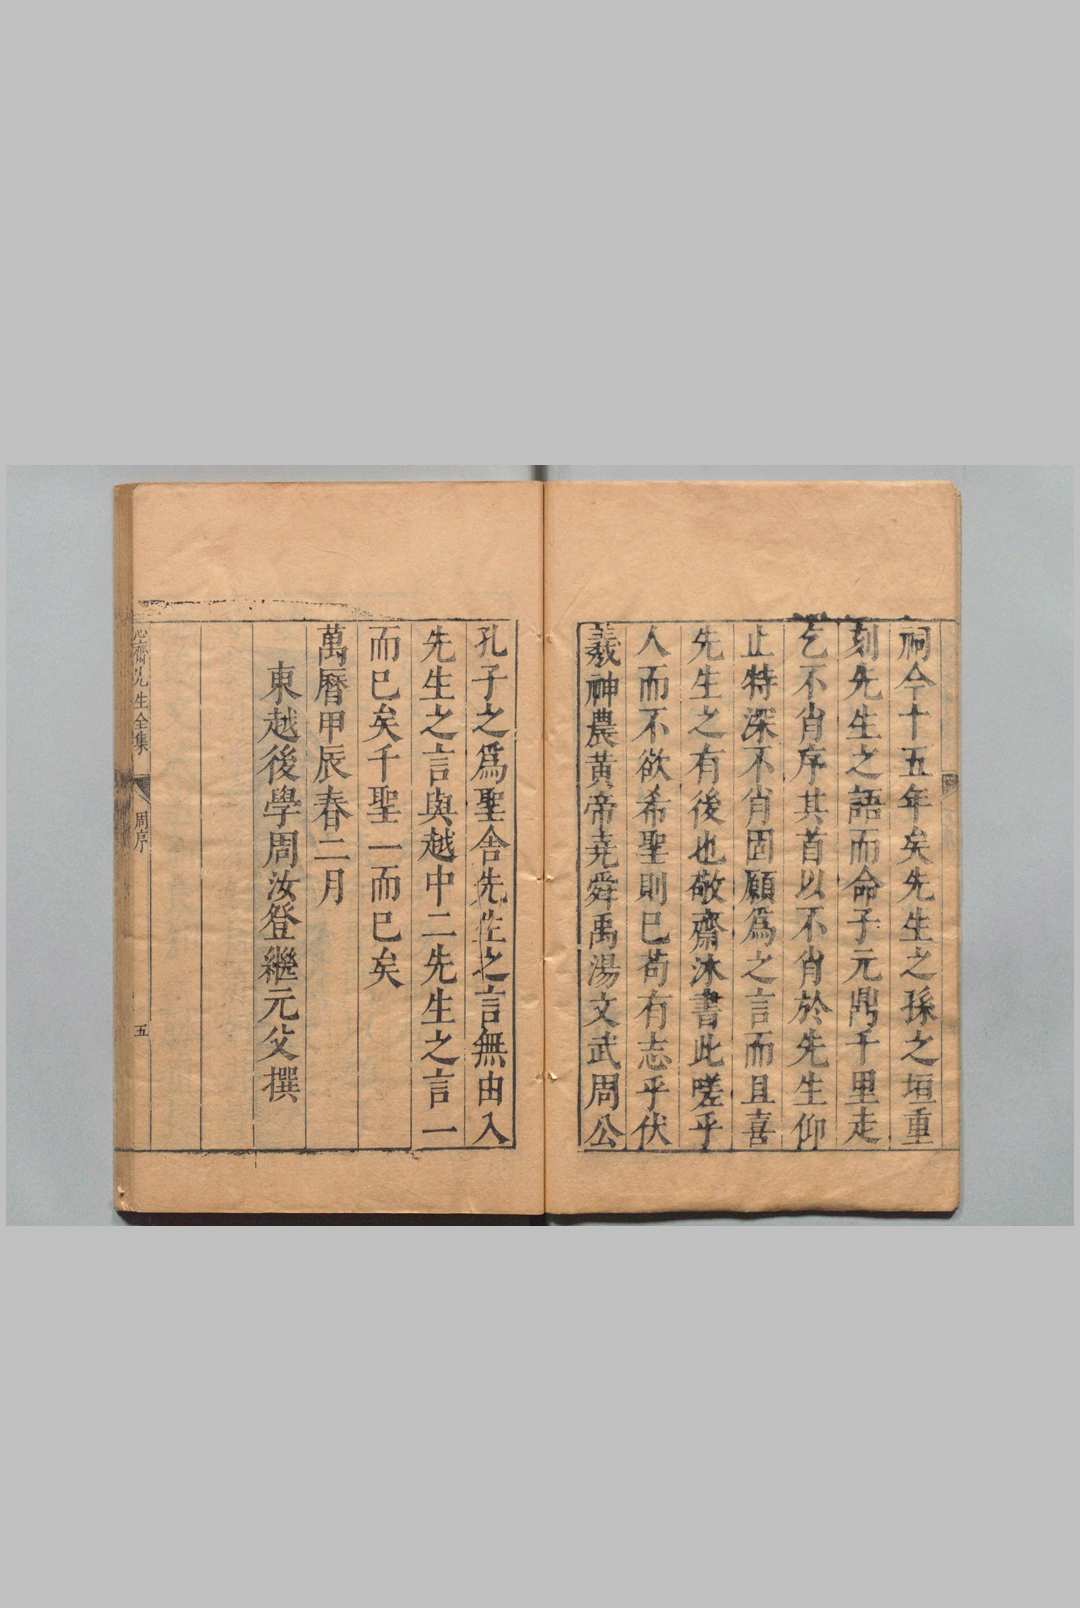 祠今十五年矣先生之孫之垣重
刻先生之語而命子元鼎千里走
乞不肖序其首以不肖於先生仰
止特深不肖固願爲之言而且喜
先生之有後也敬齋沐書此嗟乎
人而不欲希聖則已苟有志乎伏
羲神農黃帝堯舜禹湯文武周公
孔子之爲聖舍先生之言無由入
先生之言與越中二先生之言一
而已矣千聖一而已矣
萬曆甲辰春二月
東越後學周汝登繼元父撰
心齋先生全集
周序
五